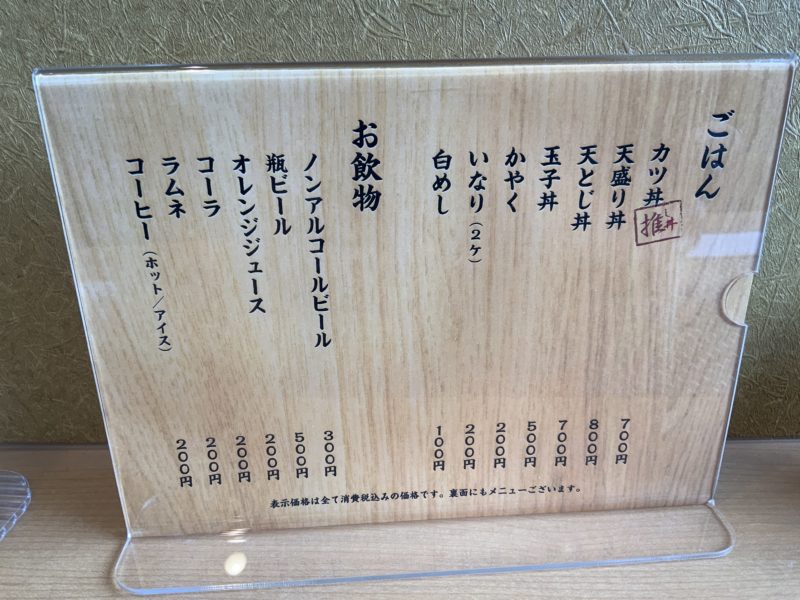 ごはん
カツ丼 700円
推し丼
天盛り丼 800円
天とじ丼 700円
玉子丼 500円
かやく 200円
いなり（2ケ） 200円
白めし 100円
お飲物
ノンアルコールビール 300円
瓶ビール 500円
オレンジジュース 200円
コーラ 200円
ラムネ 200円
コーヒー（ホット／アイス） 200円
表示価格は全て消費税込みの価格です。裏面にもメニューございます。